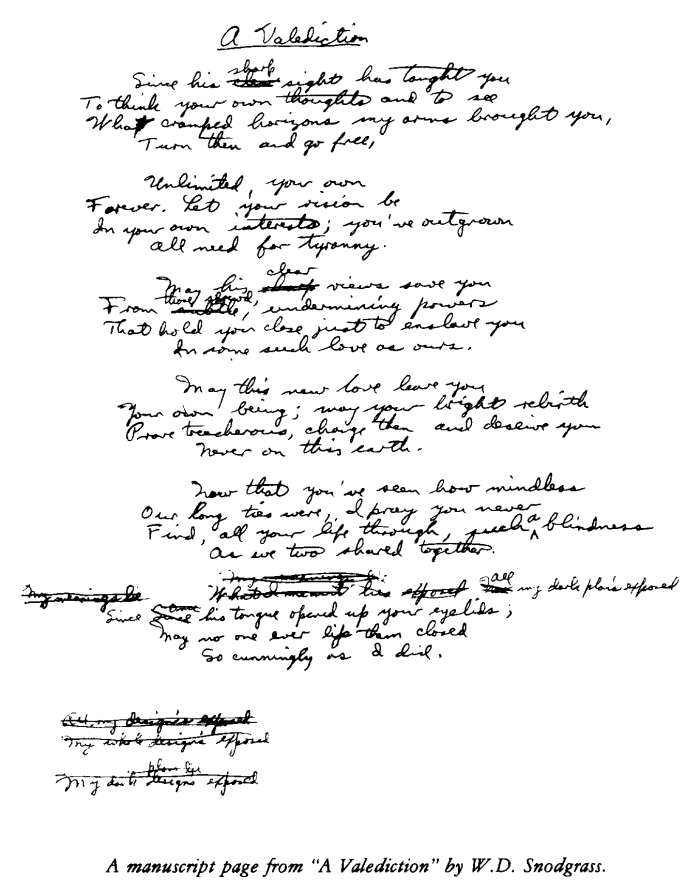 A Valediction
sharp
Since his clear sight has taught you
To think your own thoughts and to see
What cramped horizons my arms brought you,
Turn then and go free,
Unlimited, your own
Forever. Let your vision be
In your own interests; you've outgrown
All need for tyranny.
clear
May his sharp views save you
those shrewd,
From subtle, undermining powers
That hold you close just to enslave you
In some such love as ours.
May this new love leave you
Your own being; may your bright rebirth
Prove treacherous, change then and deceive you
Never on this earth.
Now that you've seen how mindless
Our long ties were, I pray you never
a
Find, all your life through, such blindness
As we two shared together.
My meanings lie
My meanings lie What I meant lies exposed all my dark plans exposed
Since his tongue opened up your eyelids;
May no one ever lip them closed
So cunningly as I did.
All my designs exposed
My whole designs exposed
plans lie
My dark designs exposed
A manuscript page from "A Valediction" by W.D. Snodgrass.